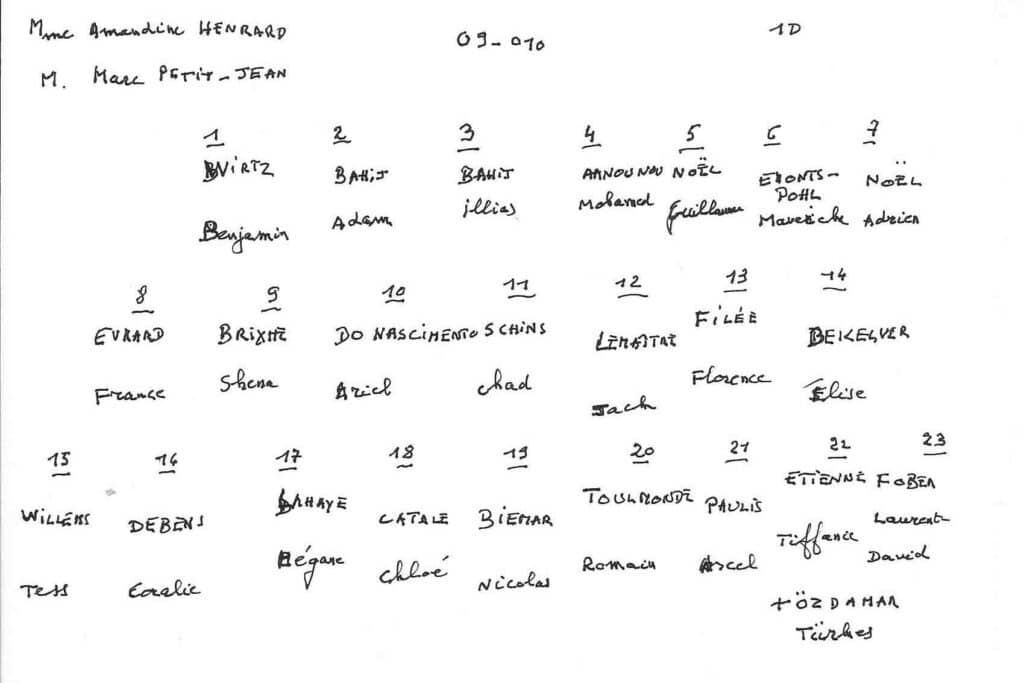 Mme Amandine HENRARD 09-010 1D
M. Marc PETIT-JEAN
1 2 3 4 5 6 7
WIRTZ BAHIJ BAHIJ AANOUNOU NOËL EVONTS-POHL NOËL
Benjamin Adam illias Mohamed Guillaume Maverick Adrien
8 9 10 11 12 13 14
EVRARD BRIXHE DO NASCIMENTO SCHINS LEMAÎTRE FILÉE
France Shena Ariel chad Jack Florence Élise
15 16 17 18 19 20 21 22 23
WILLEMS DEBENS LAHAYE CATALE BIEMAR TOULMONDE PAULIS ETIENNE FOBER
Tess Coralie Mégane Chloé Nicolas Romain Axel Tiffanie Laurent
David
+ ÖZDAMAR